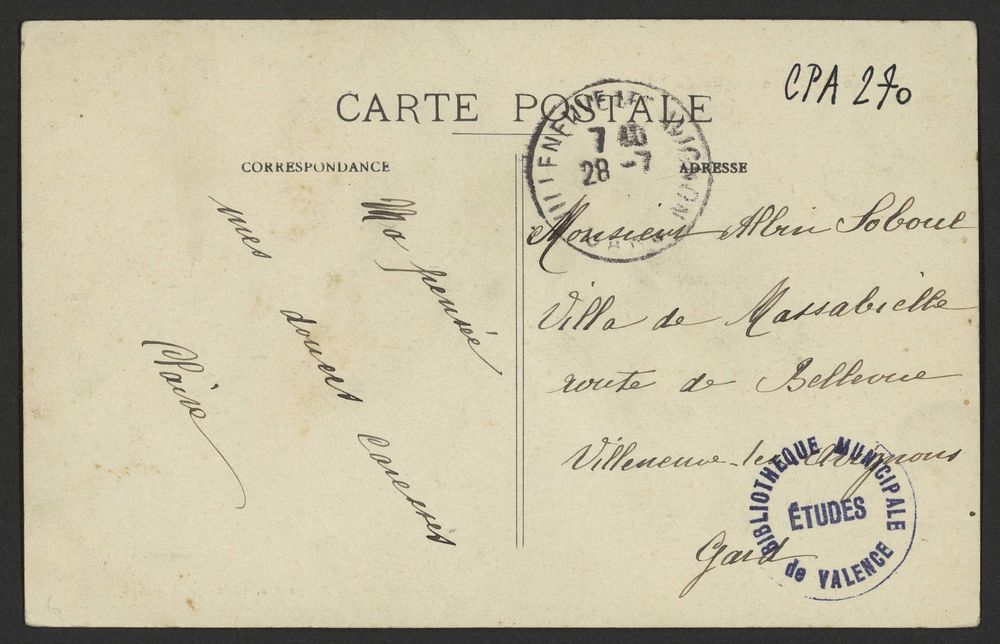 CARTE POSTALE
CPA 270
CORRESPONDANCE
ADRESSE
VILLENEUVE LES AVIGNON
7 40
28 -7
GARD
Ma pensée
mes douces Caresses
Claire
Monsieur Albin Soboul
Villa de Massabielle
route de Bellevue
Villeneuve-les-Avignons
Gard
BIBLIOTHEQUE MUNICIPALE
ÉTUDES
de VALENCE